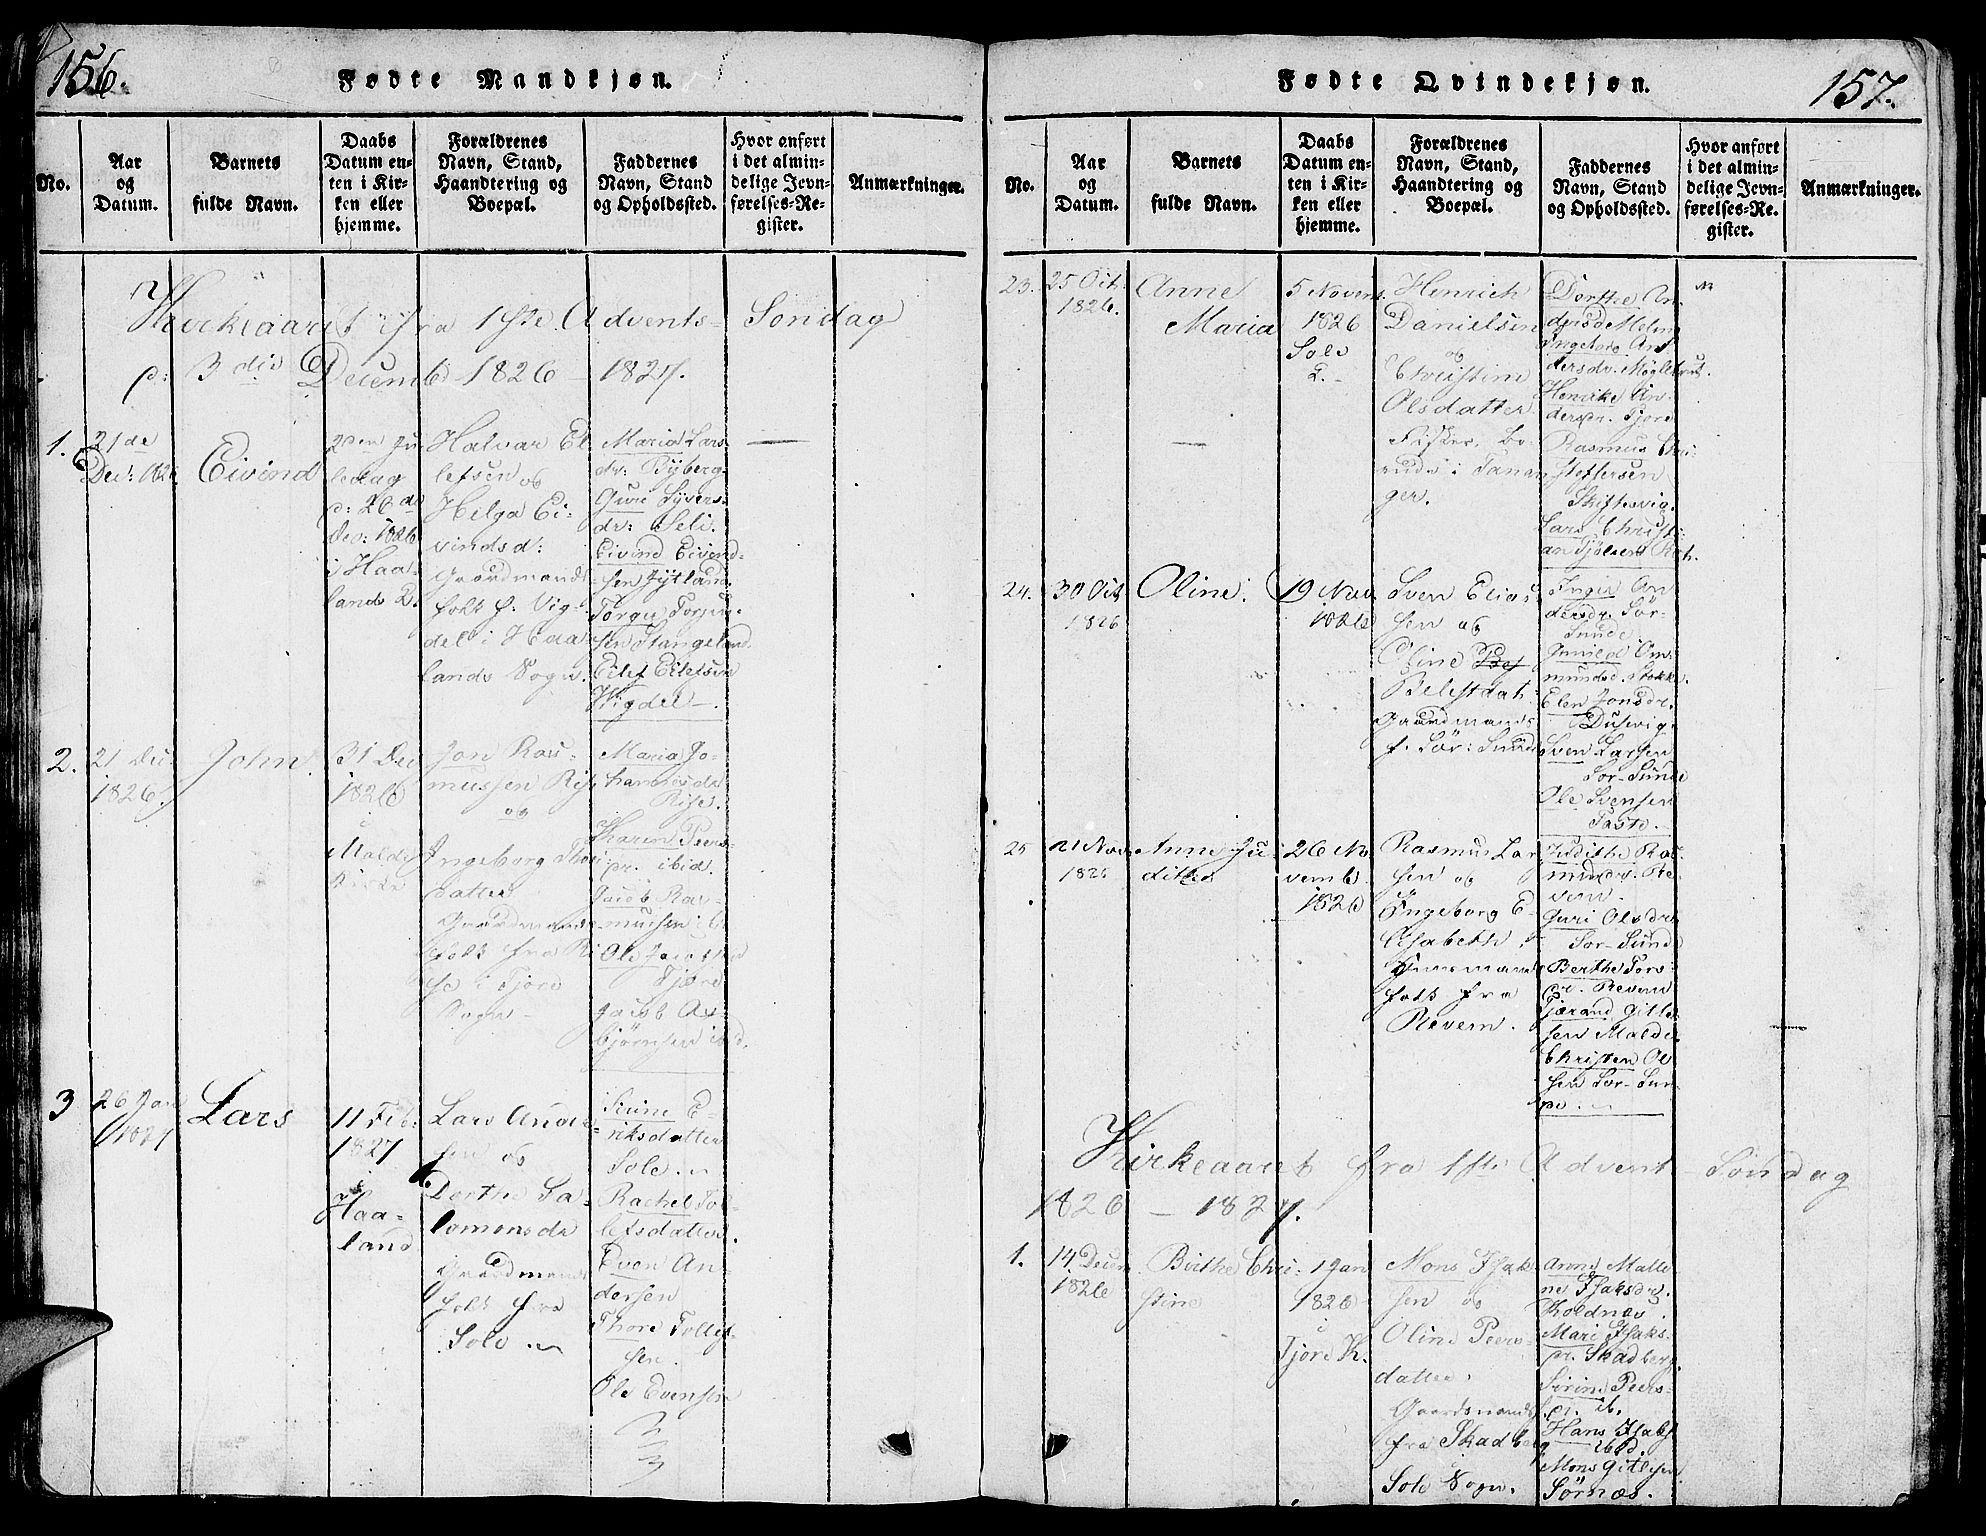 156.
Fødte Mandkjøn.
No.
Aar
og
Datum.
Barnets
fulde Navn.
Daabs
Datum en-
ten i Kir-
ken eller
hjemme.
Forældrenes
Navn, Stand,
Haandtering og
Boepæl.
Faddernes
Navn, Stand
og Opholdssted.
Hvor anført
i det almin-
delige Jevn-
førelses-Re-
gister.
Anmærkninger.
Kirkeaaret fra 1ste Advents- Søndag
d: 3die Decemb. 1826 - 1827.
1.
21de
Dec: 1826
Eivind
2den Ju
ledag
d: 26de
Dec: 1826
i Haa-
lands K.
Halvar El
lefsen og
Helga Ei-
vindsd:
Gaardmands
folk f. Vig
del i Haa
lands Sogn.
Maria Lars
dr: Byberg
Guri Syvers
dr: Seli.
Eivind Eivend-
sen Jytland
Torger Torju-
sen Stangeland
Eilef Eilefsen
Vigdel.
2.
21 Dec.
1826.
John.
31 Dec
1826
Malde
Kirke
Jon Ras-
mussen Rise
og
Ingeborg Thor
datter
Gaardmands
folk fra Ri
se i Tjore
Sogn
Maria Jo-
hannesdr
Rise.
Karen Peers-
dr. ibid.
Jacob Ras-
mussen
Ole Jacobsen
Tjore
Jacob As-
bjørnsen ibid.
3
26 Jan
1827
Lars
11 Feb:
1827
i
Haa-
land
Lars Ander
sen og
Dorthe Sa-
lomonsdr
Gaardmands
folk fra
Sole
Serine E-
riksdatter
Sole
Rachel Tol-
lefsdatter.
Even An-
dersen
Thore Tollef-
sen.
Ole Evensen
157.
Fødte Qvindekjøn.
No.
Aar
og
Datum.
Barnets
fulde Navn.
Daabs
Datum en-
ten i Kir-
ken eller
hjemme.
Forældrenes
Navn, Stand,
Haandtering og
Boepæl.
Faddernes
Navn, Stand
og Opholdssted.
Hvor anført
i det almin-
delige Jevn-
førelses-Re-
gister.
Anmærkninger.
23.
25 Oct.
1826.
Anne
Maria
5 Novem.
1826
Sole
K.
Henrich
Danielsen
og
Christine
Olsdatter
Fisker, bo-
ende i Tanan
ger.
Dorthe An-
dersd Meling
Ingebor An
dersdr. Møglebust.
Henrike An-
dersdr. Tjore
Rasmus Chri
stoffersen
Skiftesvig.
Lars Christi-
an Tjølsen Rot.
24.
30 Oct
1826
Oline.
19 Nov
1826
Sven Elias
sen og
Oline
Belestdat
Gaardmands
f. Sør: Sunde
Inger An
dersdr. Sør-
Sunde
Gunild Om
mundsd. Stokke.
Elen Jonsdr.
Dusvig
Sven Larsen
Sor-Sunde
Ole Svensen
Tasto.
25
21 Nov.
1826
Anne Ju
dithe
26 No
vemb
1826
Rasmus Lar
sen og
Ingeborg E-
lisabeth
Huusmands
folk fra
Revem.
Judithe Ras-
musdr. Re-
vem.
Guri Olsdr
Sor-Sunde
Berthe Tors
dr. Revem
Tjærand Gitle
sen Malde
Christen Ol
sen Sor-Sun-
de.
Kirkeaaret fra 1ste Advent Søndag
1826 - 1827.
1.
14 Decem
1826
Birthe Chri-
stine
1 Jan
1826
i
Tjore K.
Mons Isak
sen og
Oline Peers-
datter.
Gaardsmandsf
fra Skadberg
Sole Sogn.
Anne Malle
ne Isaksdr.
Koldnæs
Mari Isaks-
dr. Skadberg.
Sirine Peers-
dr. ib.
Hans Isaks
ibid.
Mons Gitlesen
Sørnæs.